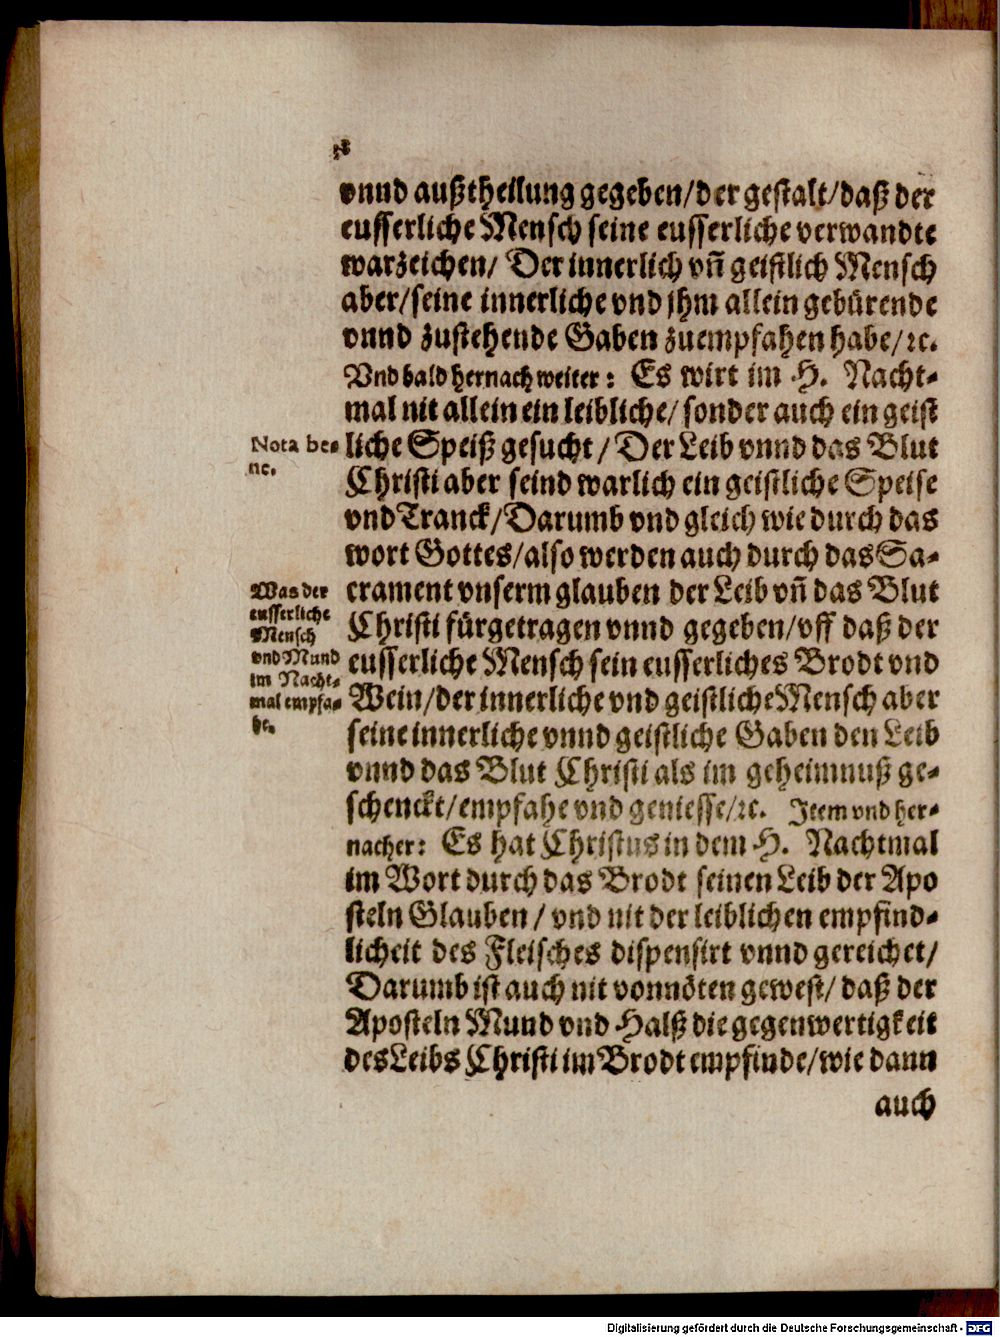 vnnd außtheilung gegeben/der gestalt/daß der
eusserliche Mensch seine eusserliche verwandte
warzeichen/ Der innerlich vñ geistlich Mensch
aber/seine innerliche vnd jhm allein gebürende
vnnd zustehende Gaben zuempfahen habe/ꝛc.
Vnd bald hernach weiter: Es wirt im H. Nacht-
mal nit allein ein leibliche/ sonder auch ein geist
Nota be-
ne.
liche Speiß gesucht / Der Leib vnnd das Blut
Christi aber seind warlich ein geistliche Speise
vnd Tranck/Darumb vnd gleich wie durch das
wort Gottes/also werden auch durch das Sa-
Was der
eusserliche
Mensch
vnd Mund
im Nacht-
mal empfa-
he.
crament vnserm glauben der Leib vñ das Blut
Christi fürgetragen vnnd gegeben/vff daß der
eusserliche Mensch sein eusserliches Brodt vnd
Wein/der innerliche vnd geistliche Mensch aber
seine innerliche vnnd geistliche Gaben den Leib
vnnd das Blut Christi als im geheimnuß ge-
schenckt/empfahe vnd geniesse/ꝛc. Item vnd her-
nacher: Es hat Christus in dem H. Nachtmal
im Wort durch das Brodt seinen Leib der Apo
steln Glauben / vnd nit der leiblichen empfind-
licheit des Fleisches dispensirt vnnd gereichet/
Darumb ist auch nit vonnöten gewest/ daß der
Aposteln Mund vnd Halß die gegenwertigkeit
des Leibs Christi im Brodt empfinde/wie dann
auch
Digitalisierung gefördert durch die Deutsche Forschungsgemeinschaft - DFG